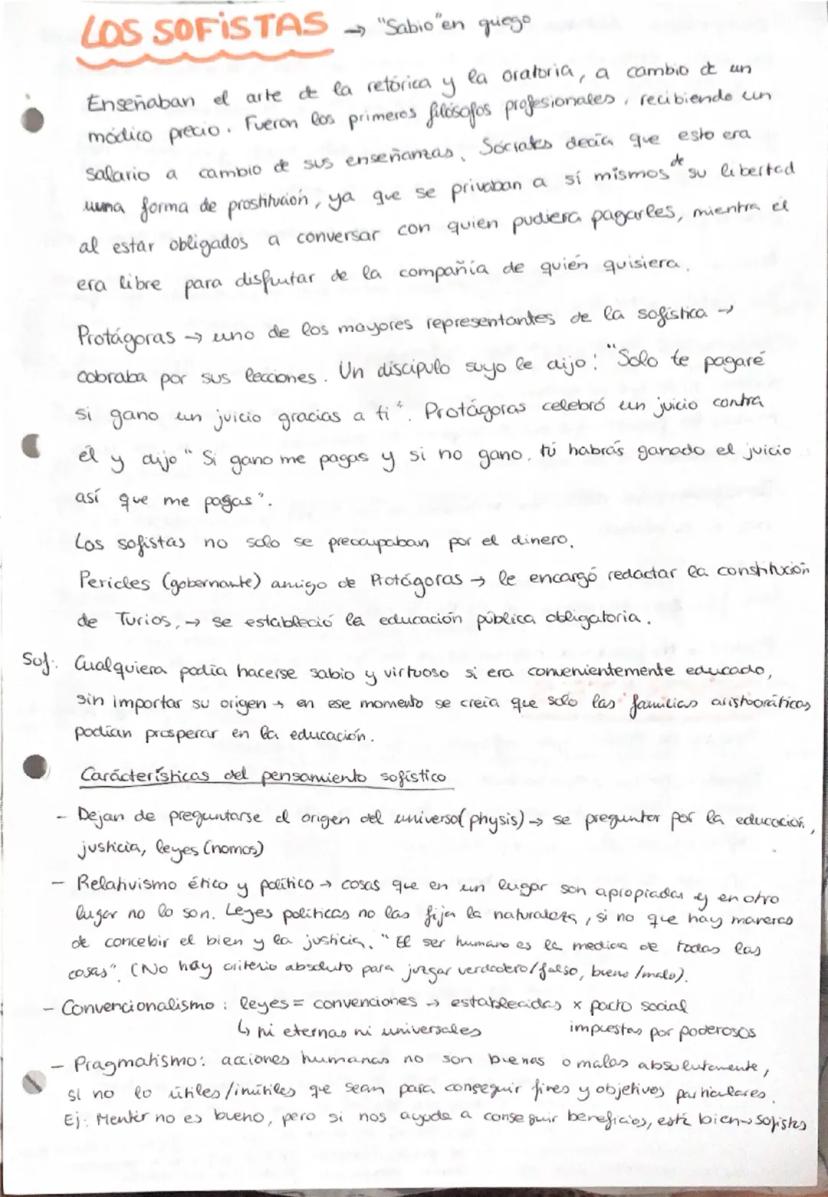 LOS SOFISTAS → "Sabio" en griego
Enseñaban el arte de la retórica y la oratoria, a cambio de un
módico precio. Fueron los primeros filósofos profesionales, recibiendo un
salario a cambio de sus enseñanzas. Sócrates decía que esto era
una forma de prostitución, ya que se privaban a sí mismos de su libertad
al estar obligados a conversar con quien pudiera pagarles, mientra él
era libre para disfrutar de la compañía de quién quisiera.
Protágoras → uno de los mayores representantes de la sofística →
cobraba por sus lecciones. Un discípulo suyo le dijo: "Solo te pagaré
si gano un juicio gracias a ti". Protágoras celebró un juicio contra
él y dijo "Si gano me pagas y si no gano, tú habrás ganado el juicio
así que me pagas".
Los sofistas no solo se preocupaban por el dinero.
Pericles (gobernante) amigo de Protágoras → le encargó redactar la constitución
de Turios, → se estableció la educación pública obligatoria.
Sof: Cualquiera podía hacerse sabio y virtuoso si era convenientemente educado,
sin importar su origen → en ese momento se creía que solo las familias aristocráticas
podían prosperar en la educación.
Carácterísticas del pensamiento sofístico
- Dejan de preguntarse el origen del universo (physis) → se preguntan por la educación,
justicia, leyes (nomos)
- Relativismo ético y político → cosas que en un lugar son apropiadas y en otro
lugar no lo son. Leyes políticas no las fija la naturaleza, si no que hay maneras
de concebir el bien y la justicia. "El ser humano es la medida de todas las
cosas". (No hay criterio absoluto para juzgar verdadero/falso, bueno/malo).
- Convencionalismo: leyes = convenciones → establecidas x pacto social
↳ ni eternas ni universales impuestas por poderosos
- Pragmatismo: acciones humanas no son buenas o malas absolutamente,
si no lo útiles/inútiles que sean para conseguir fines y objetivos particulares.
Ej: Mentir no es bueno, pero si nos ayuda a conseguir beneficios, está bien → sofistas